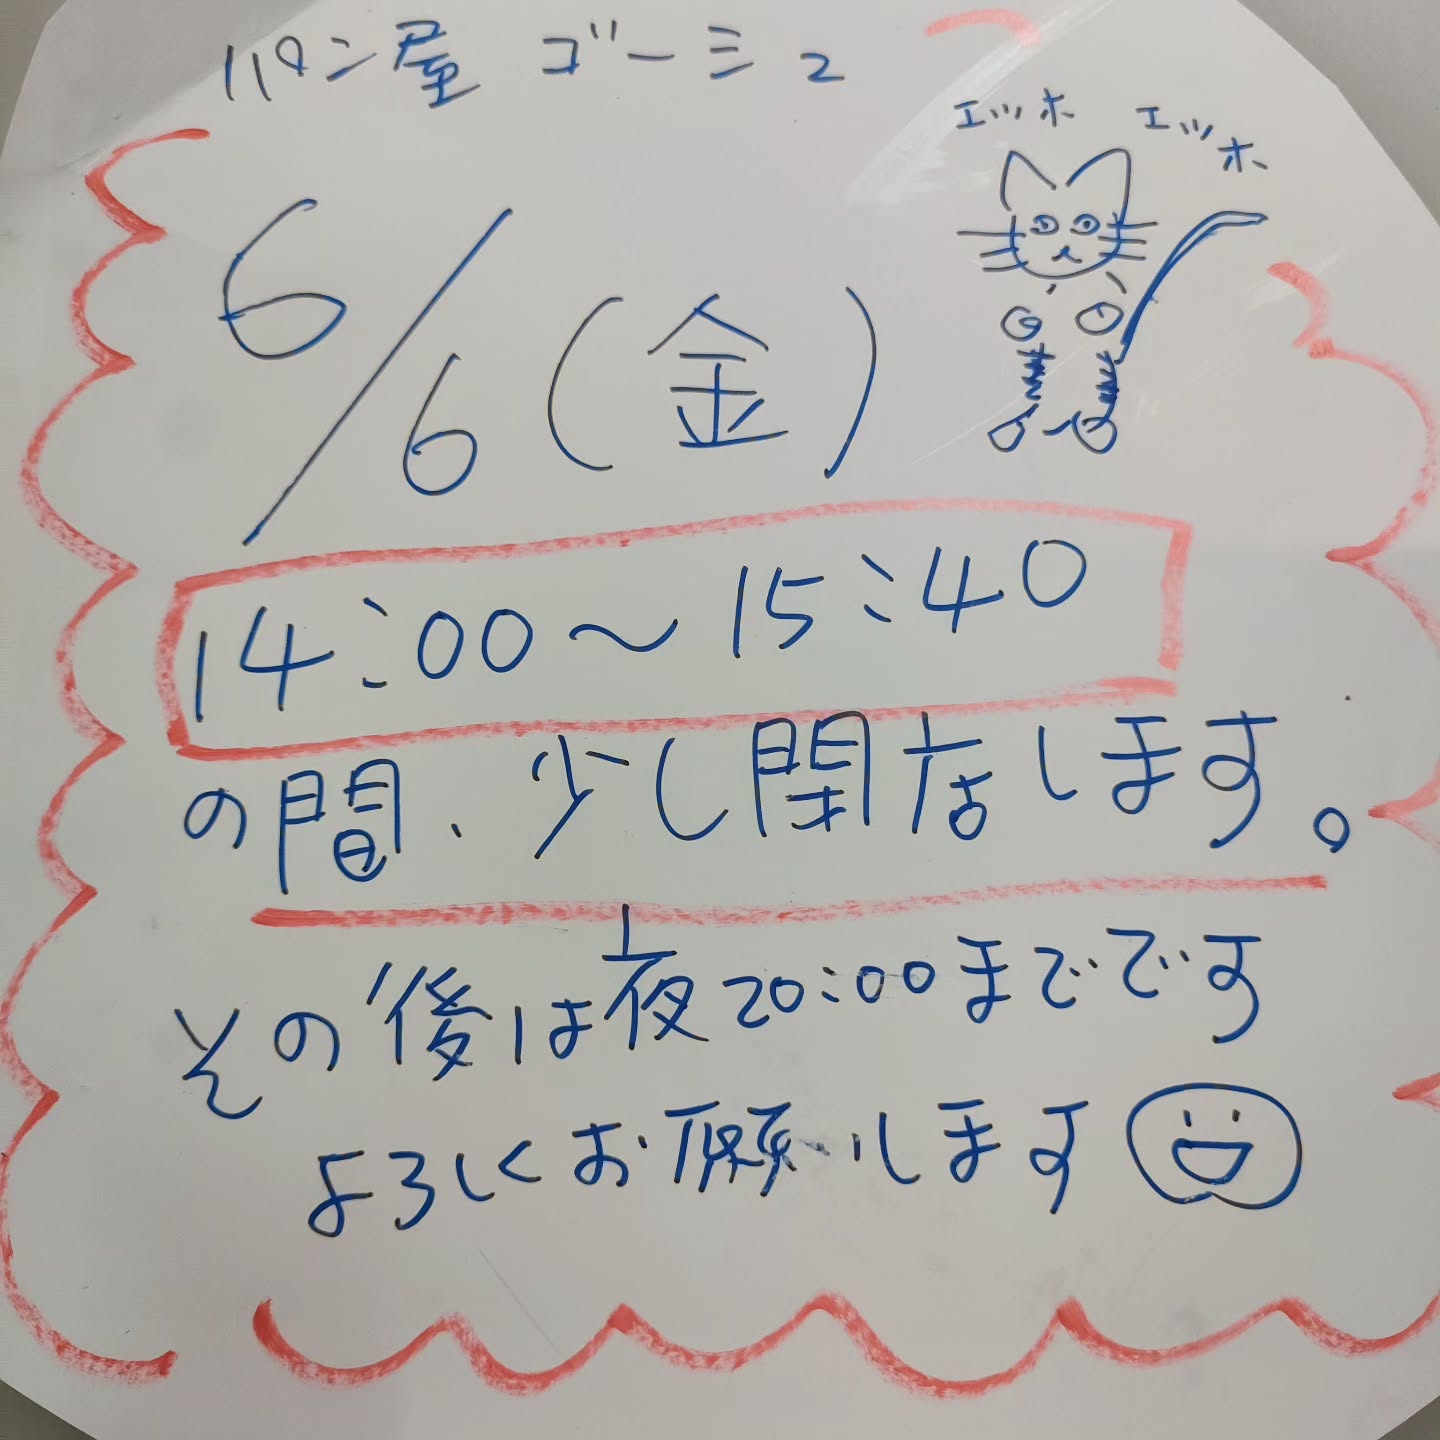 パン屋 ゴーシュ
エッホ エッホ
6/6(金)
14:00～15:40
の間、少し閉店します。
その後は夜20:00までです
よろしくお願いします